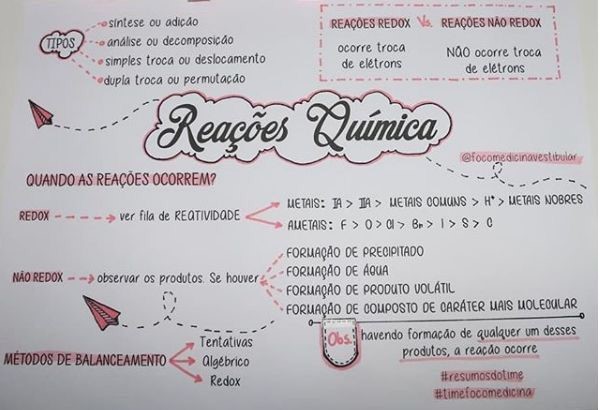 TIPOS
síntese ou adição
análise ou decomposição
simples troca ou deslocamento
dupla troca ou permutação
REAÇÕES REDOX Vs. REAÇÕES NÃO REDOX
ocorre troca de elétrons
NÃO ocorre troca de elétrons
Reações Química
@focomedicinavestibular
QUANDO AS REAÇÕES OCORREM?
REDOX ver fila de REATIVIDADE
METAIS: IA > IIA > METAIS COMUNS > H⁺ > METAIS NOBRES
AMETAIS: F > O > Cl > Br > I > S > C
NÃO REDOX observar os produtos. Se houver
FORMAÇÃO DE PRECIPITADO
FORMAÇÃO DE ÁGUA
FORMAÇÃO DE PRODUTO VOLÁTIL
FORMAÇÃO DE COMPOSTO DE CARÁTER MAIS MOLECULAR
Obs. havendo formação de qualquer um desses
produtos, a reação ocorre
MÉTODOS DE BALANCEAMENTO
Tentativas
Algébrico
Redox
#resumosdotime
#timefocomedicina